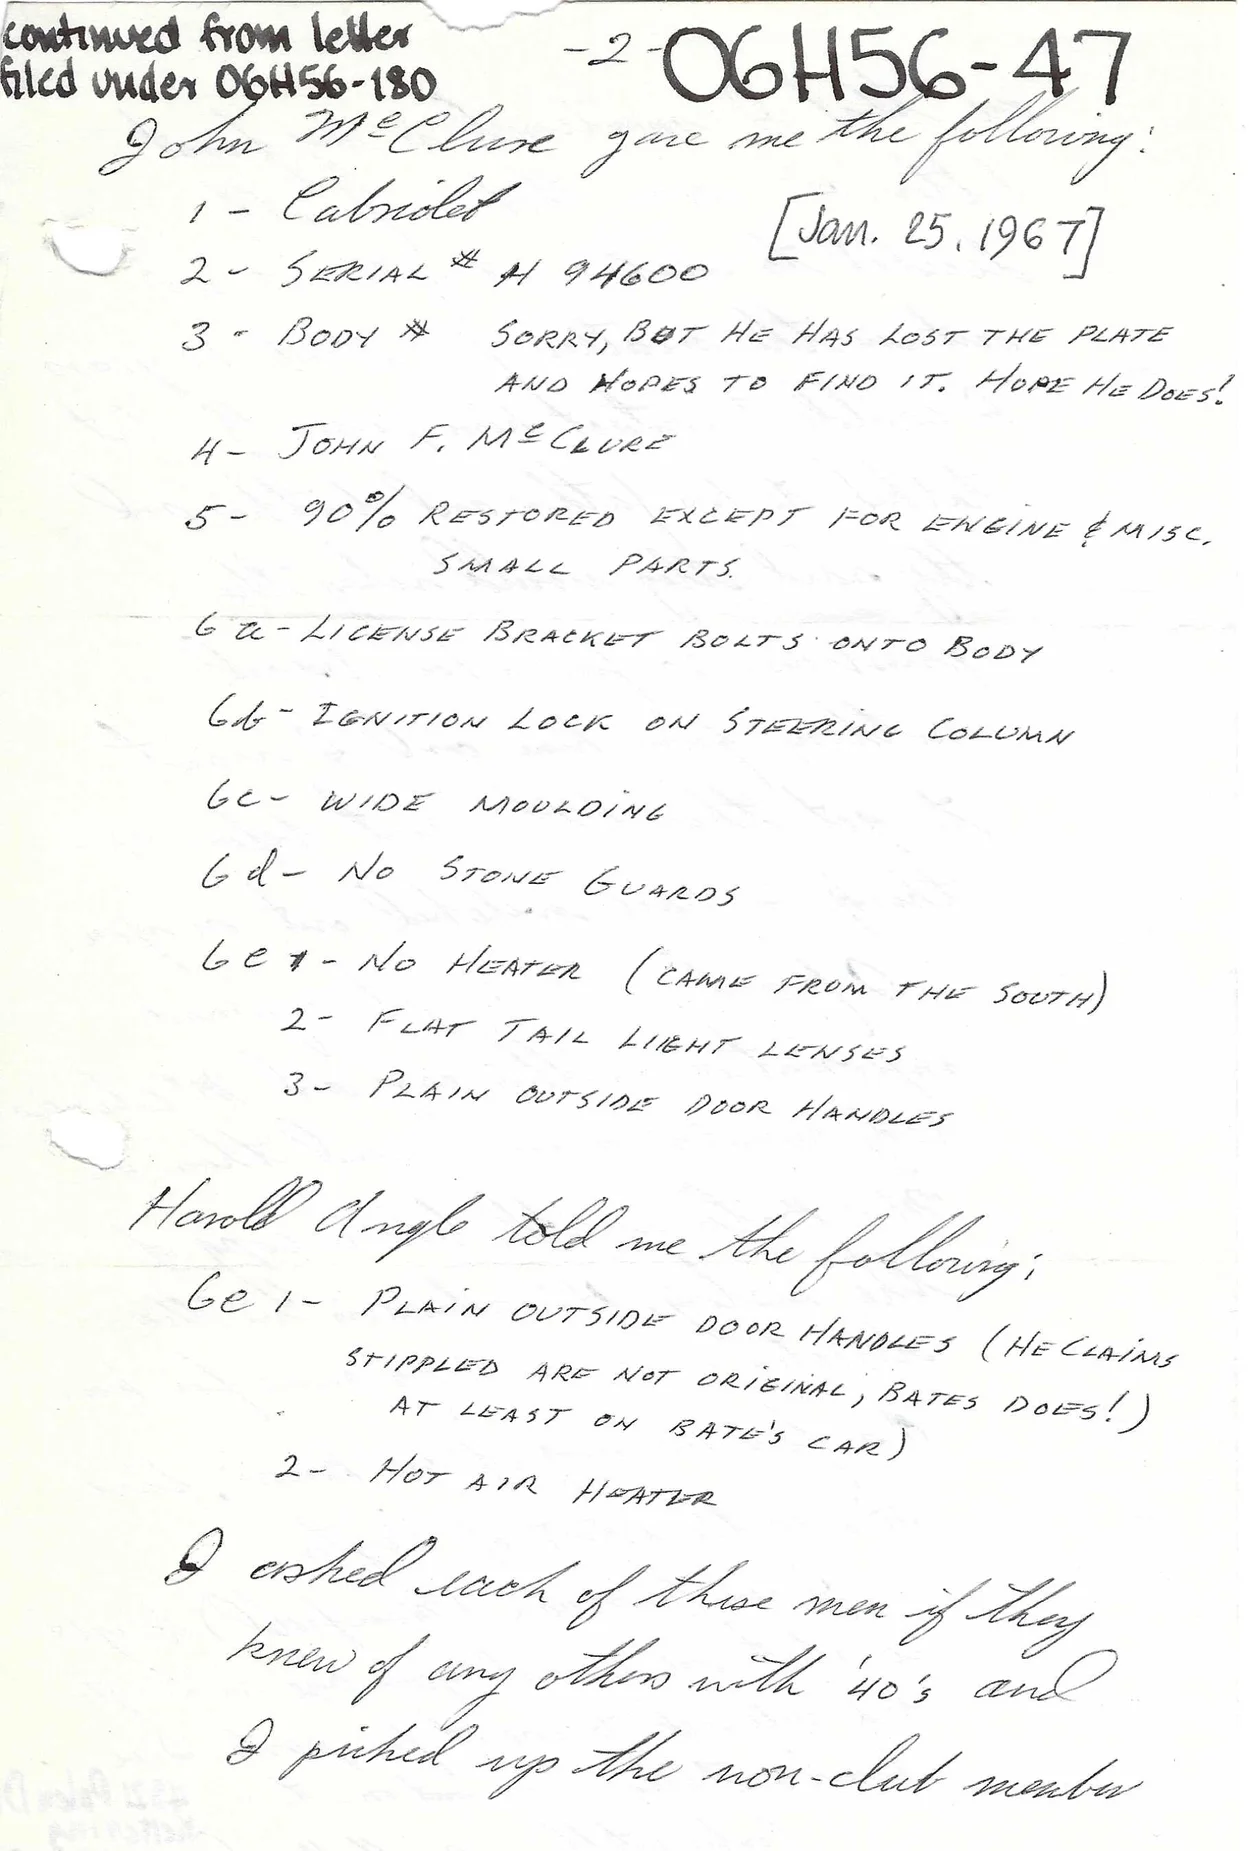 continued from letter
filed under 06H56-180
-2-
06H56-47
John McClure gave me the following:
1 - Cabriolet
[Jan. 25, 1967]
2 - SERIAL # H 94600
3 - BODY # SORRY, BUT HE HAS LOST THE PLATE
AND HOPES TO FIND IT. HOPE HE DOES!
4 - JOHN F. McCLURE
5 - 90% RESTORED EXCEPT FOR ENGINE & MISC.
SMALL PARTS.
6a - LICENSE BRACKET BOLTS ONTO BODY
6b - IGNITION LOCK ON STEERING COLUMN
6c - WIDE MOULDING
6d - NO STONE GUARDS
6e 1 - NO HEATER (CAME FROM THE SOUTH)
2 - FLAT TAIL LIGHT LENSES
3 - PLAIN OUTSIDE DOOR HANDLES
Harold Angle told me the following;
6e 1 - PLAIN OUTSIDE DOOR HANDLES (HE CLAIMS
STIPPLED ARE NOT ORIGINAL, BATES DOES!)
AT LEAST ON BATE'S CAR)
2 - HOT AIR HEATER
I asked each of these men if they
knew of any others with '40's and
I picked up the non-club member